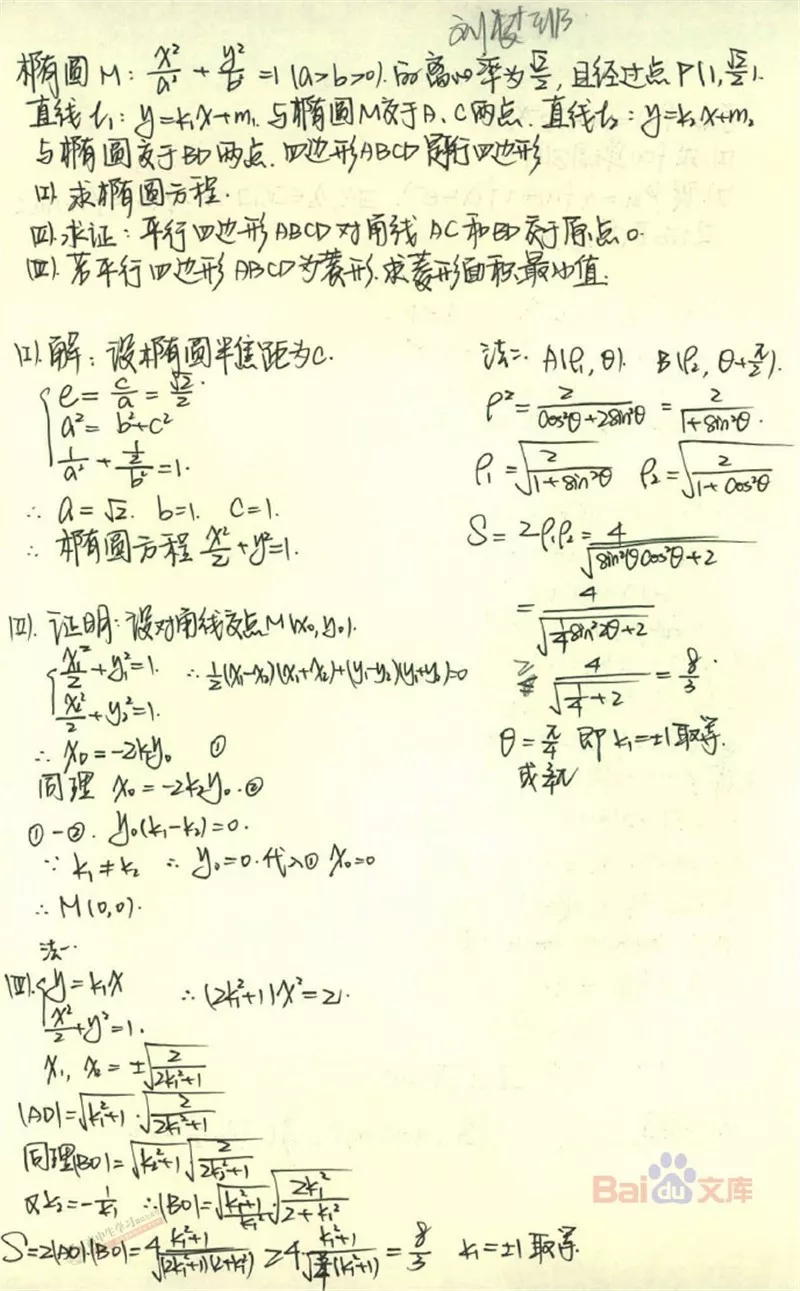 椭圆M: x²/a² + y²/b² =1 (a>b>0). 的离心率为√2/2, 且经过点P(1,√2/2).
直线l₁: y=k₁x+m₁ 与椭圆M交于A、C两点. 直线l₂: y=k₂x+m₂
与椭圆交于BD两点. 四边形ABCD 平行四边形
(I) 求椭圆方程.
(II) 求证: 平行四边形ABCD对角线AC和BD交于原点O.
(III). 若平行四边形ABCD为菱形. 求菱形面积最小值.
(I). 解: 设椭圆半焦距为C.
e = c/a = √2/2.
a² = b²+c²
1/a² + (1/2)/b² = 1.
∴ a=√2. b=1. c=1.
∴ 椭圆方程 x²/2 + y² = 1.
(II). 证明: 设对角线交点M(x₀,y₀).
x₁²/2 + y₁² = 1. ∴ 1/2(x₁-x₂)(x₁+x₂)+(y₁-y₂)(y₁+y₂)=0
x₂²/2 + y₂² = 1.
∴ x₀ = -2k₁y₀ ①
同理 x₀ = -2k₂y₀. ②
①-②. y₀(k₁-k₂)=0.
∵ k₁≠k₂ ∴ y₀=0. 代入① x₀=0
∴ M(0,0).
法一.
(III). y=k₁x ∴ (2k₁²+1)x²=2.
x²/2 + y² = 1.
x₁, x₂ = ±√(2/(2k₁²+1))
|AO| = √(k₁²+1)·√(2/(2k₁²+1))
同理|BO| = √(k₂²+1)√(2/(2k₂²+1))
又k₂=-1/k₁ ∴|BO| = √((k₁²+1)/k₁²)·√(2k₁²/(2+k₁²))
S=2|AO|·|BO|=4 (k₁²+1)/√((2k₁²+1)(2+k₁²)) ≥ 4·(k₁²+1)/(3/2(k₁²+1)) = 8/3 k₁=±1取等.
法二. A(ρ₁,θ). B(ρ₂,θ+π/2).
ρ² = 2/(cos²θ+2sin²θ) = 2/(1+sin²θ).
ρ₁ = √(2/(1+sin²θ)) ρ₂ = √(2/(1+cos²θ))
S = 2ρ₁ρ₂ = 4/√(sin²θcos²θ+2)
= 4/√(1/4 sin²2θ+2)
≥ 4/√(1/4+2) = 8/3.
θ = π/4 即 k₁=±1取等.
Bai du 文库